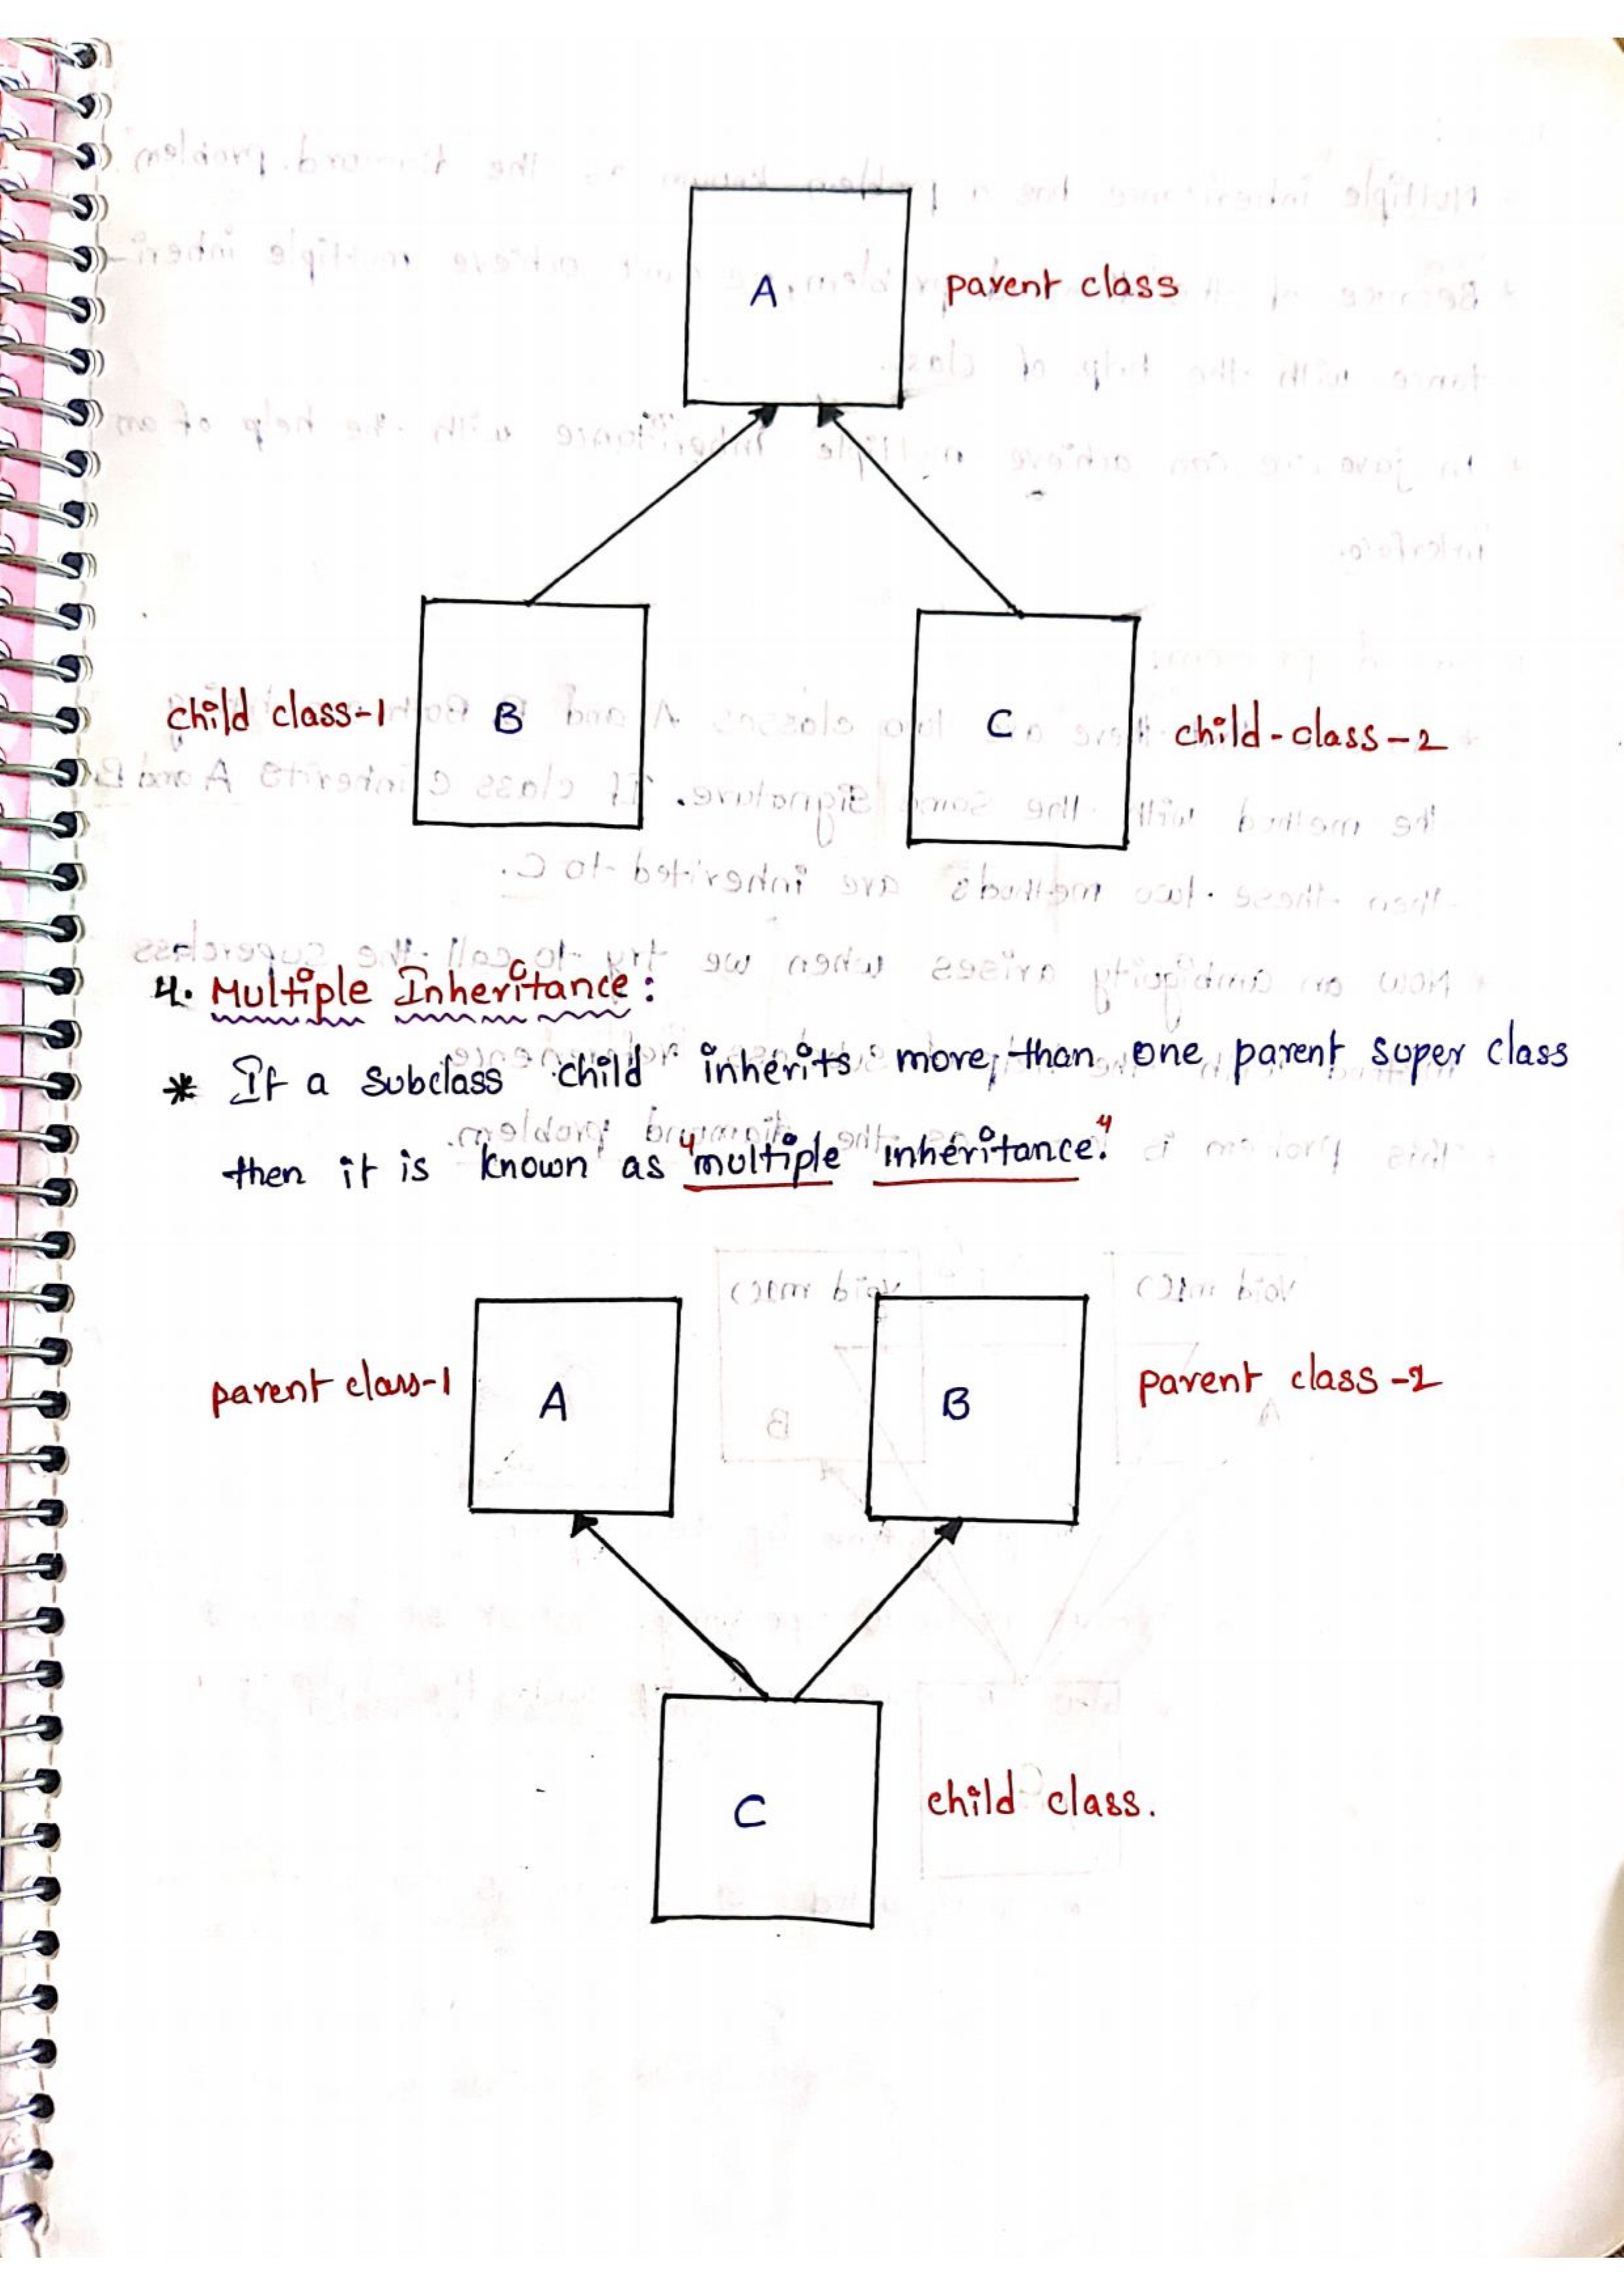 A parent class
child class-1 B C child-class-2
4. Multiple Inheritance:
* If a subclass child inherits more than one parent super class
then it is known as "multiple inheritance."
parent class-1 A B parent class-2
C child class.